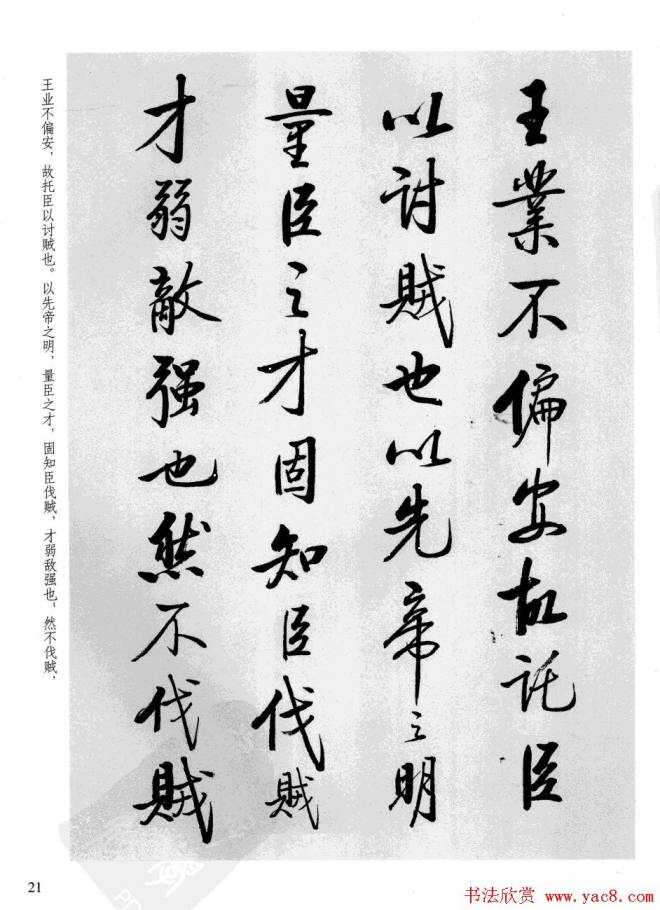 王業不偏安故託臣
以討賊也以先帝之明
量臣之才固知臣伐賊
才弱敵强也然不伐賊
王业不偏安，故托臣以讨贼也。以先帝之明，量臣之才，固知臣伐贼，才弱敌强也，然不伐贼，
21
书法欣赏 www.yac8.com